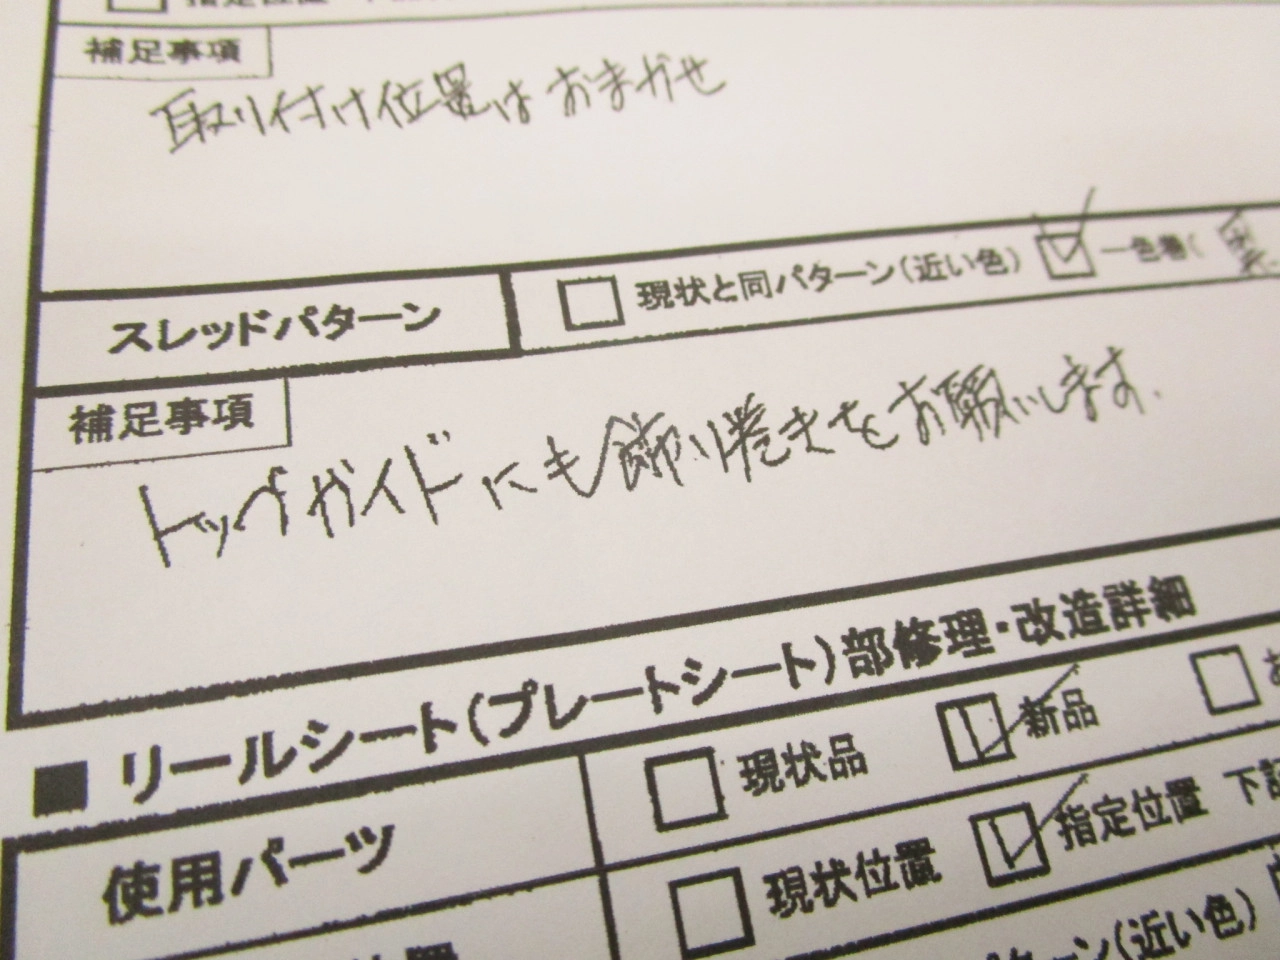 補足事項
取り付け位置はおまかせ
スレッドパターン
現状と同パターン(近い色)
一色巻(
補足事項
トップガイドにも飾り巻きをお願いします.
■ リールシート(プレートシート)部修理・改造詳細
使用パーツ
現状品
新品
現状位置
指定位置 下記
ターン(近い色)